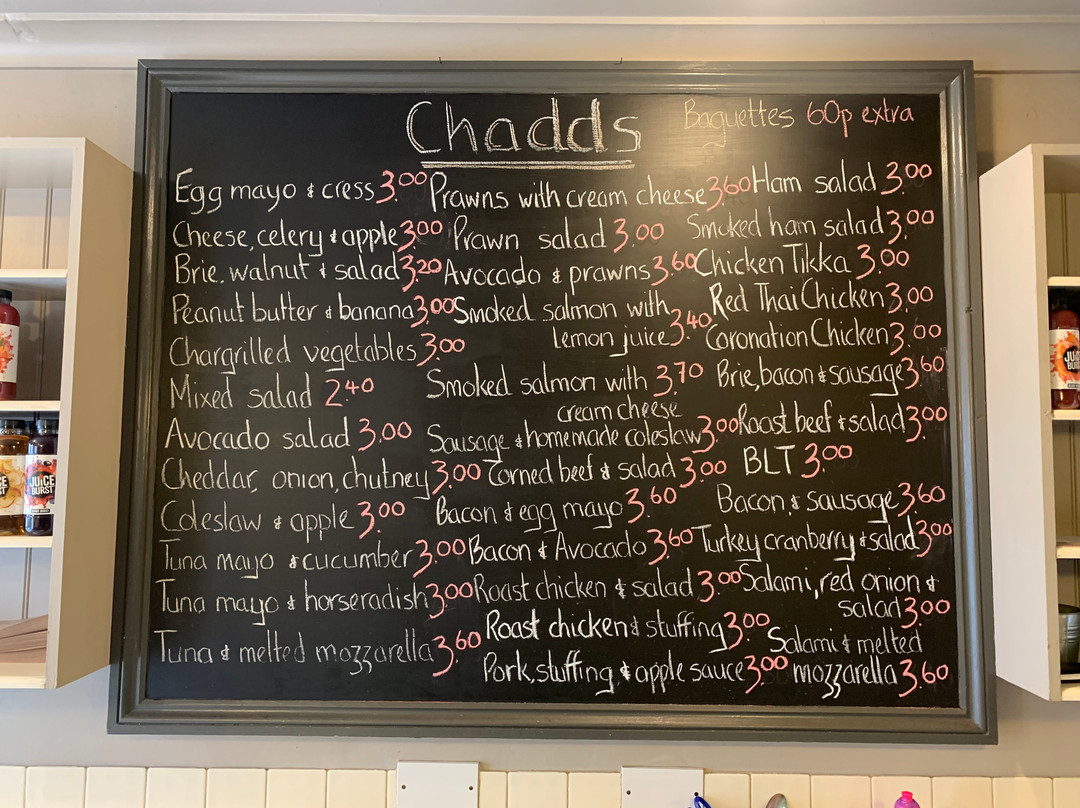 Chadds
Baguettes 60p extra
Egg mayo & cress 3.00
Cheese, celery & apple 3.00
Brie. walnut & salad 3.20
Peanut butter & banana 3.00
Chargrilled vegetables 3.00
Mixed salad 2.40
Avocado salad 3.00
Cheddar, onion, chutney 3.00
Coleslaw & apple 3.00
Tuna mayo & cucumber 3.00
Tuna mayo & horseradish 3.00
Tuna & melted mozzarella 3.60
Prawns with cream cheese 3.60
Prawn salad 3.00
Avocado & prawns 3.60
Smoked salmon with
lemon juice 3.40
Smoked salmon with 3.70
cream cheese
Sausage & homemade coleslaw 3.00
Corned beef & salad 3.00
Bacon & egg mayo 3.60
Bacon & Avocado 3.60
Roast chicken & salad 3.00
Roast chicken & stuffing 3.00
Pork, stuffing & apple sauce 3.00
Ham salad 3.00
Smoked ham salad 3.00
Chicken Tikka 3.00
Red Thai Chicken 3.00
Coronation Chicken 3.00
Brie, bacon & sausage 3.60
Roast beef & salad 3.00
BLT 3.00
Bacon & sausage 3.60
Turkey cranberry & salad 3.00
Salami, red onion &
salad 3.00
Salami & melted
mozzarella 3.60
JUICE
BURST